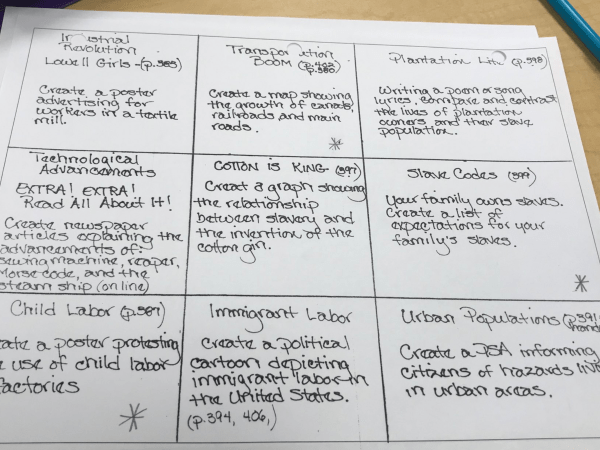 Industrial
Revolution
Lowell Girls - (p.385)
Create a poster
advertising for
workers in a textile
mill.
Transportation
BOOM (p.402
p.380)
Create a map showing
the growth of canals,
railroads and main
roads.
Plantation Life (p.398)
Writing a poem or song
lyrics, compare and contrast
the lives of plantation
owners and their slave
population.
Technological
Advancements
EXTRA! EXTRA!
Read All About It!
Create newspaper
articles explaining the
advancements of:
sewing machine, reaper,
Morse code, and the
steam ship (online)
COTTON IS KING (397)
Creat a graph showing
the relationship
between slavery and
the invention of the
cotton gin.
Slave Codes (399)
Your family owns slaves.
Create a list of
expectations for your
family's slaves.
Child Labor (p.387)
eate a poster protesting
e use of child labor
factories
Immigrant Labor
Create a political
cartoon depicting
immigrant labor in
the United States.
(p.394, 406,)
Urban Populations (p.391
Create a PSA informing
citizens of hazards
in urban areas.